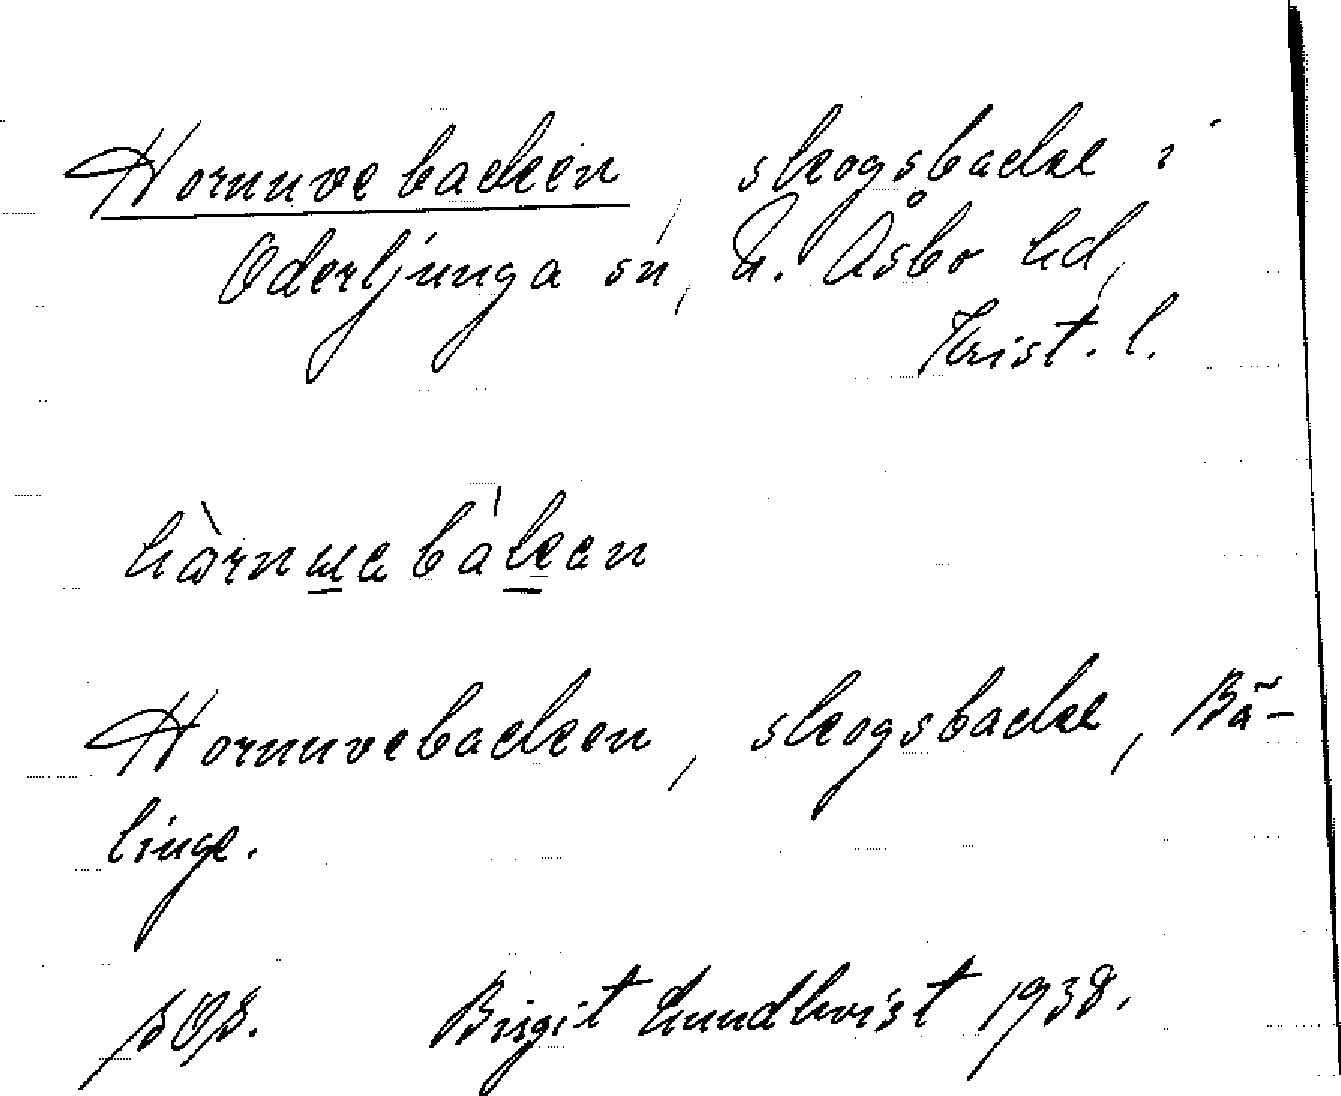 Hornuvebacken, skogsbacke i
Oderljunga sn, N. Åsbo hd,
Krist. l.
Hornuvebacken, skogsbacke, Bä-
linge.
Birgit Lundkvist 1938.